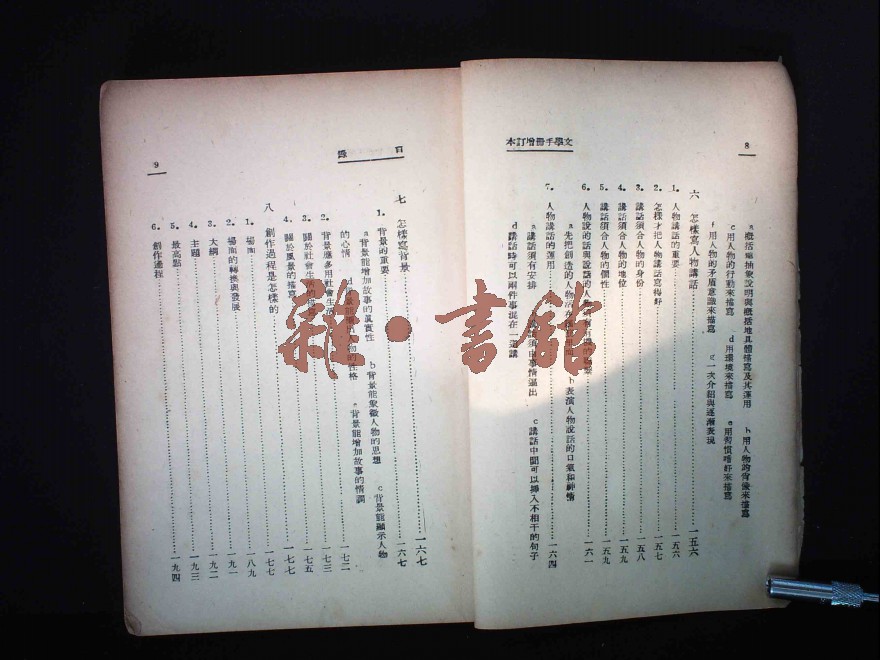 8
文學手冊增訂本
a概括與抽象的說明與概括地具體描寫及其運用 b用人物的背景來描寫
c用人物的行動來描寫 d用環境來描寫 e用習慣嗜好來描寫
f用人物的矛盾意識來描寫 g一次介紹與逐漸表現
六 怎樣寫人物講話……一五六
1. 人物講話的重要……一五六
2. 怎樣才把人物講話寫得好……一五七
3. 講話須合人物的身份……一五八
4. 講話須合人物的地位……一五九
5. 講話須合人物的個性……一五九
6. 人物說的話與說話的人……一六一
a先把創造的人物活在 b表演人物說話的口氣和神情
7. 人物講話的運用……一六四
a講話須有安排 情溢出 c講話中間可以插入不相干的句子
d講話時可以兩件事混在一道講
目錄
9
七 怎樣寫背景……一六七
1. 背景的重要……一六七
a背景能增加故事的眞實性 b背景能象徵人物的思想 c背景能顯示人物
的心情 d 物的性格 e背景能增加故事的情調……一七二
2. 背景應多用社會生活……一七三
3. 關於社會生活的……一七五
4. 關於風景的描寫……一七七
八 創作過程是怎樣的……一七七
1. 場面……一八九
2. 場面的轉換與發展……一九一
3. 大綱……一九二
4. 主題……一九三
5. 最高點……一九四
6. 創作過程
雜·書館